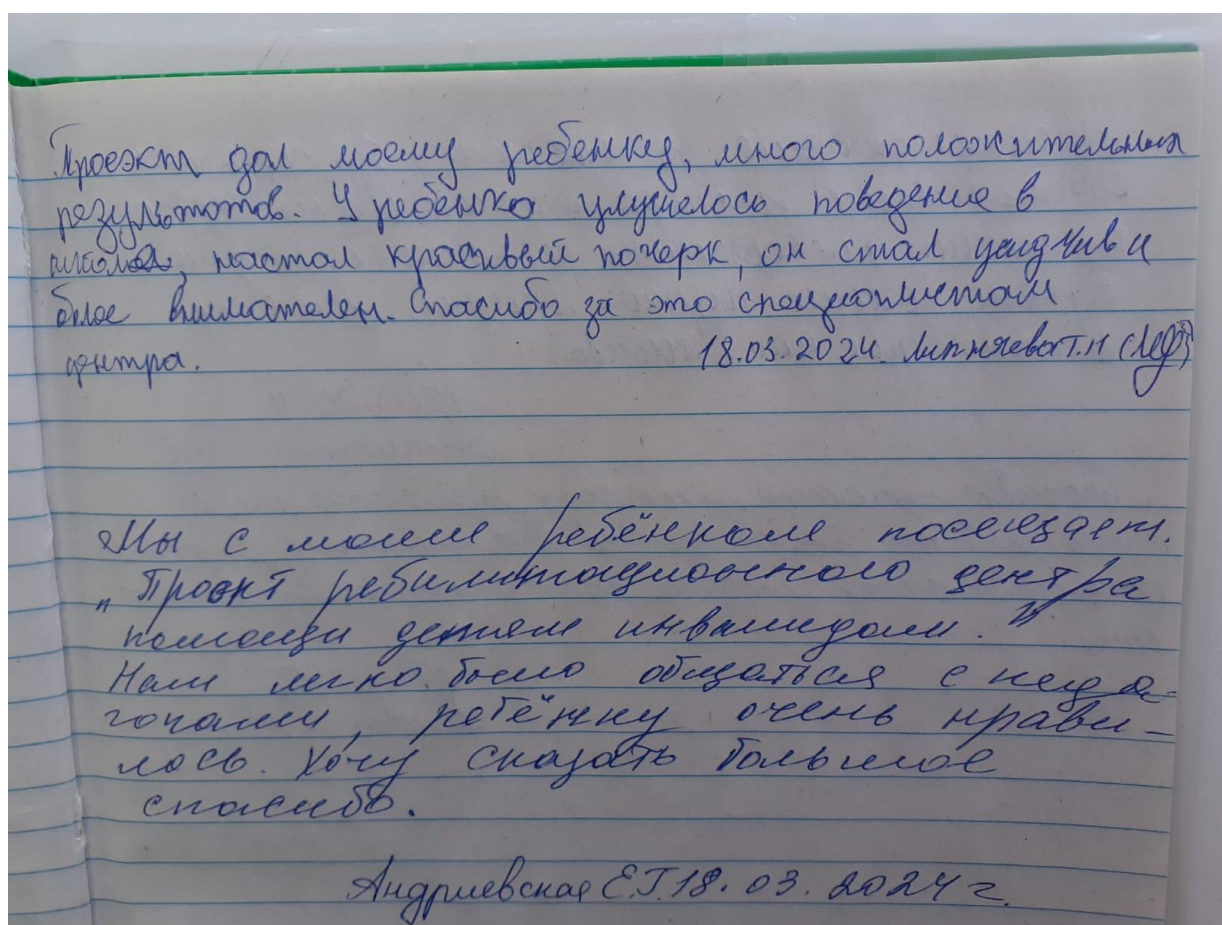 Проэкт дал моему ребенку, много положительных
результатов. У ребенка улушелось поведение в
школе, настал красивый почерк, он стал усидчив и
более внимателен. Спасибо за это специалистам
центра. 18.03.2024.
Мы с моим ребёнком посещаем.
„Проэкт ребилитационного центра
помощи детям инвалидам."
Нам легко было общаться с педа-
гогами, ребёнку очень нрави-
лось. Хочу сказать большое
спасибо.
Андриевская Е.Г. 18.03.2024 г.